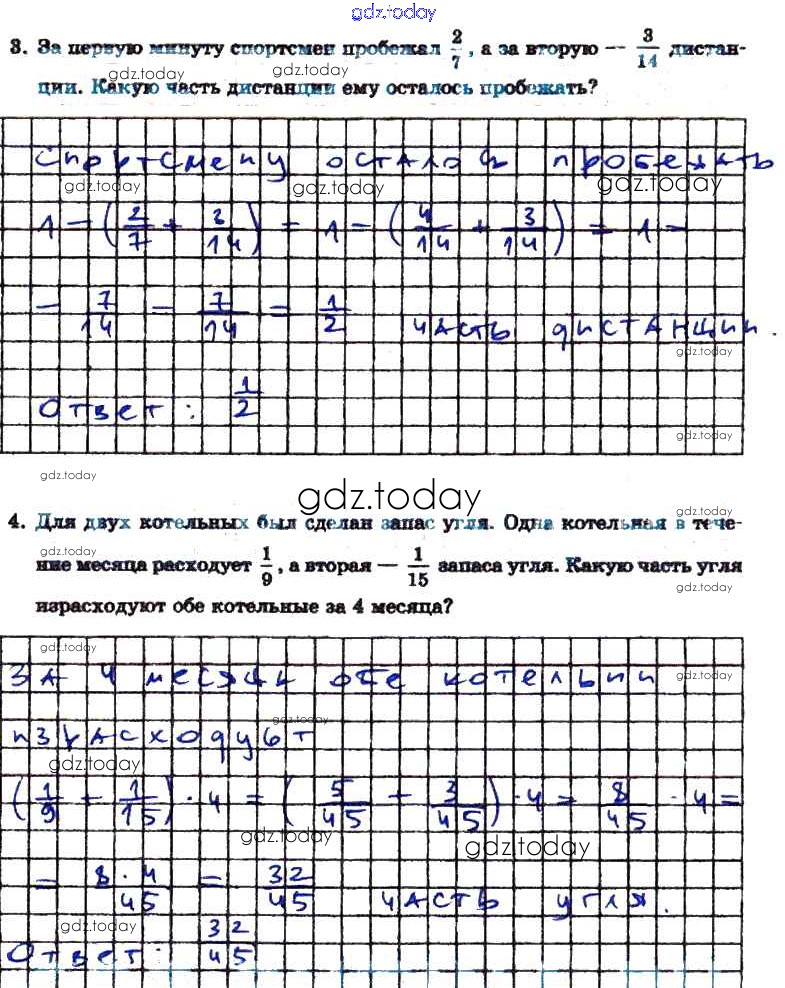 gdz.today
3. За первую минуту спортсмен пробежал 2/7, а за вторую — 3/14 дистан-
gdz.today gdz.today
ции. Какую часть дистанции ему осталось пробежать?
Спортсмену осталось пробежать
gdz.today gdz.today gdz.today
1 − (2/7 + 3/14) = 1 − (4/14 + 3/14) = 1 −
− 7/14 = 7/14 = 1/2 часть дистанции.
gdz.today
Ответ: 1/2
gdz.today
gdz.today
gdz.today
gdz.today
4. Для двух котельных был сделан запас угля. Одна котельная в тече-
gdz.today
ние месяца расходует 1/9, а вторая — 1/15 запаса угля. Какую часть угля
gdz.today
израсходуют обе котельные за 4 месяца?
gdz.today
За 4 месяца обе котельни
gdz.today
gdz.today
израсходуют
gdz.today
(1/9 + 1/15) · 4 = (5/45 + 3/45) · 4 = 8/45 · 4 =
gdz.today gdz.today
= 8·4/45 = 32/45 часть угля.
gdz.today
Ответ: 32/45